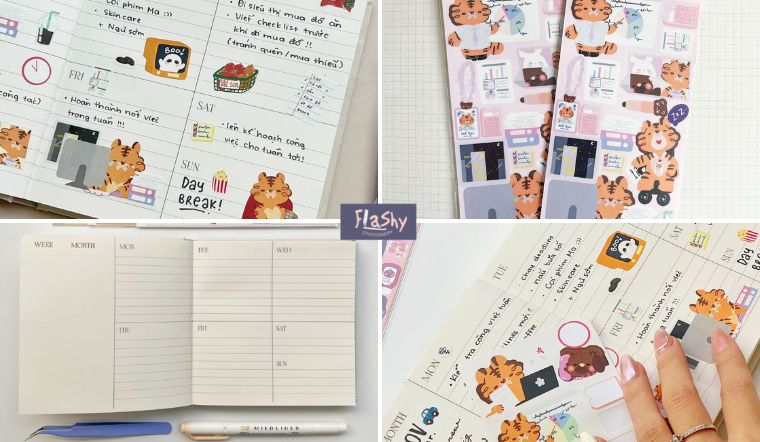 Coi phim Ma :)))
• Skin care
+ Ngủ sớm
• Đi siêu thị mua đồ ăn
• Viết checklist trước
khi đi mua đồ !!
(tránh quên / mua thiếu)
BOO!
FRI
• Hoàn thành nốt việc
trong tuần !!!
SAT
• lên kế hoạch công
việc cho tuần tới!
SUN
DAY
BREAK!
ZzZ
Flashy
STATIONERY
WEEK MONTH
MON
TUE
WED
THU
FRI
SAT
SUN
MILDLINER
TUE
Chạy deadline
• Coi phim Ma :)))
• Skin care
+ Ngủ sớm
FRI
• Hoàn thành nốt việc
trong tuần !!!
SAT
DAY
BREAK!
MON
MONTH
NOV